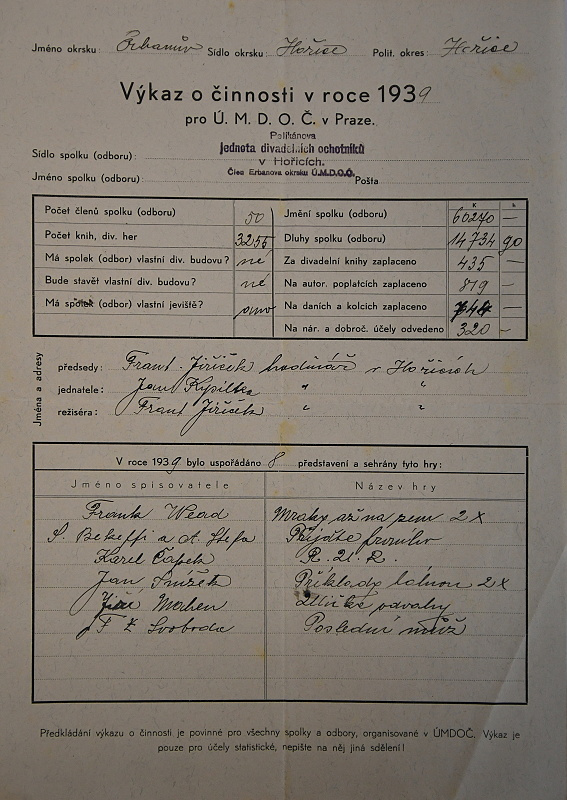 Jméno okrsku: Erbanův Sídlo okrsku: Hořice Polit. okres: Hořice
Výkaz o činnosti v roce 1939
pro Ú. M. D. O. Č. v Praze.
Pelikánova
Jednota divadelních ochotníků
Sídlo spolku (odboru):
v Hořicích.
Člen Erbanova okrsku Ú.M.D.O.Č.
Jméno spolku (odboru): Pošta
K h
Počet členů spolku (odboru) 50 Jmění spolku (odboru) 60270 —
Počet knih, div. her 3255 Dluhy spolku (odboru) 14734 90
Má spolek (odbor) vlastní div. budovu? né Za divadelní knihy zaplaceno 435 —
Bude stavět vlastní div. budovu? né Na autor. poplatcích zaplaceno 819 —
Má spolek (odbor) vlastní jeviště? ano Na daních a kolcích zaplaceno —
Na nár. a dobroč. účely odvedeno 320 —
Jména a adresy
předsedy: Frant. Jiříček hodinář v Hořicích
jednatele: Jan " "
režiséra: Frant Jiříček " "
V roce 1939 bylo uspořádáno 8 představení a sehrány tyto hry:
Jméno spisovatele Název hry
Frank Wead Mraky až na zem 2 X
Š. Bekeffi a A. Štefa Přijďte
Karel Čapek R. U. R.
Jan Snížek Příklady táhnou 2 X
Jiří Mahen Ulička odvahy
F X Svoboda Poslední muž
Předkládání výkazu o činnosti je povinné pro všechny spolky a odbory, organisované v ÚMDOČ. Výkaz je
pouze pro účely statistické, nepište na něj jiná sdělení!